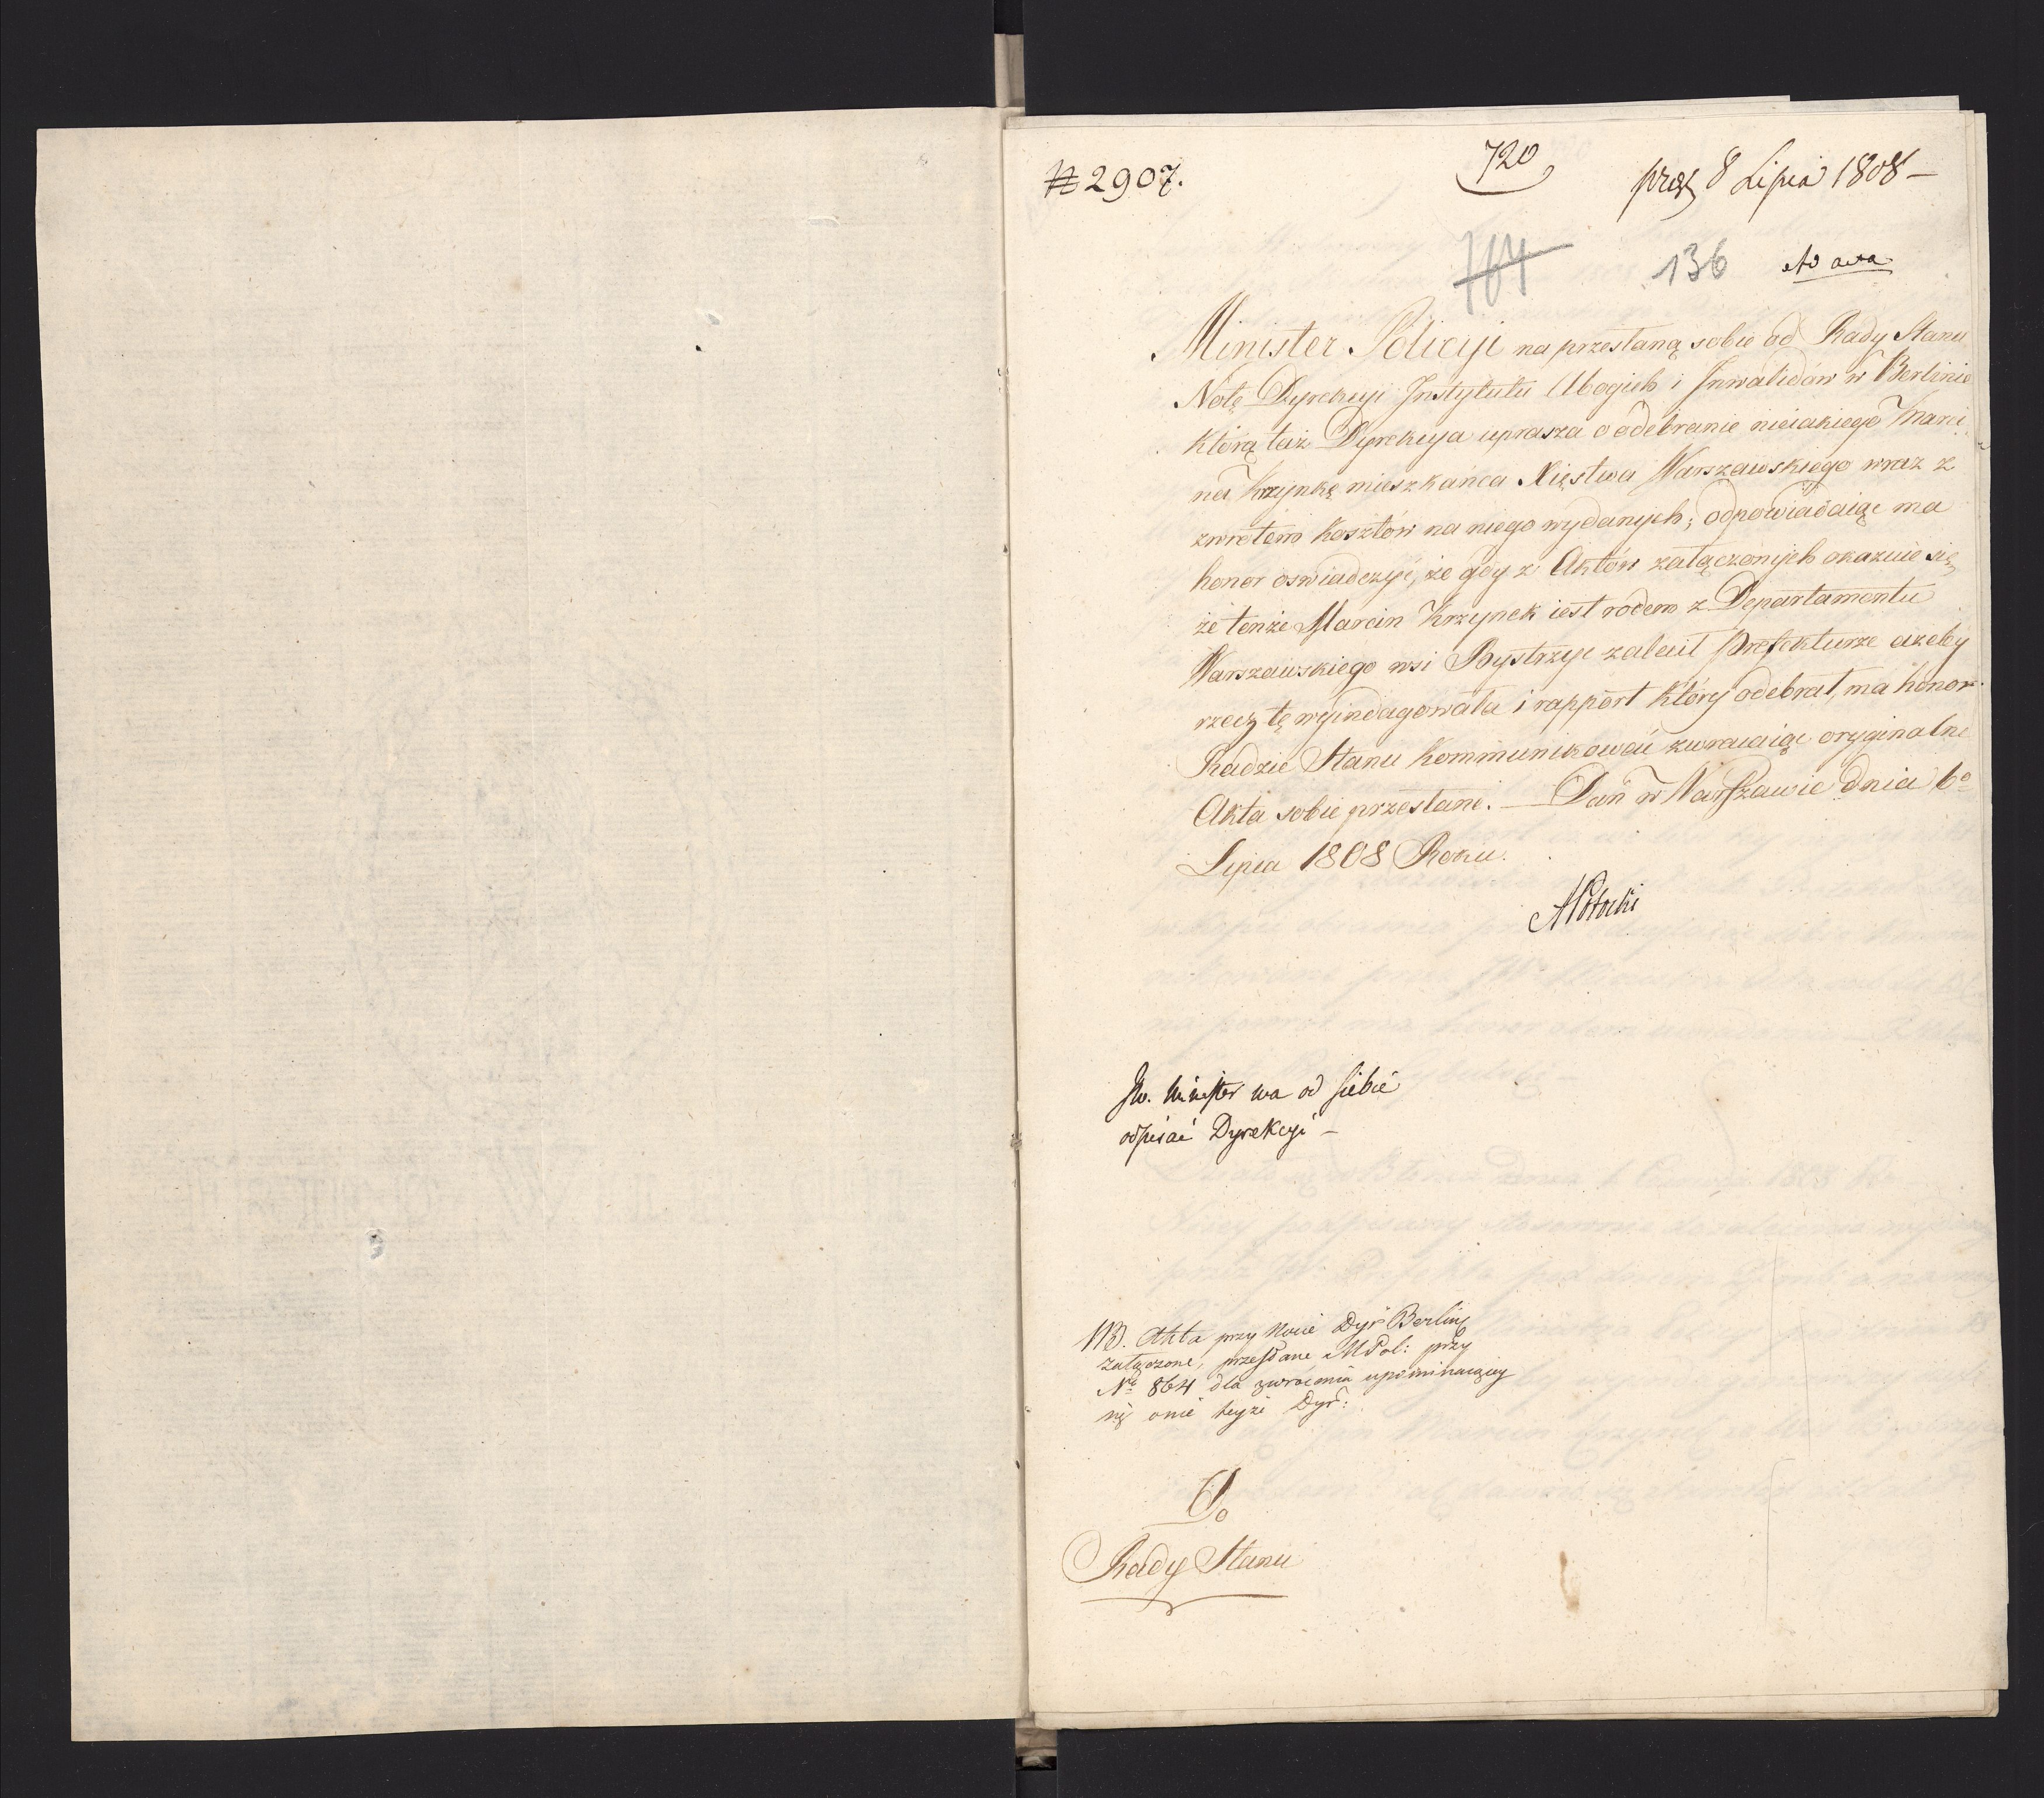 № 2907.
720
prez 8 Lipca 1808 –
764
136
Ad acta
Minister Policyi na przesłaną sobie od Rady Stanu
Notę Dyrekcyi Instytutu Ubogich i Inwalidów w Berlinie
którą taż Dyrekcya uprasza o odebranie nieiakiego Marci,
na Krzynkę mieszkańca Xięstwa Warszawskiego wraz z
zwrotem kosztów na niego wydanych; odpowiadaiąc ma
honor oswiadczyć, że gdy z Aktów załączonych okazuie się,
że tenże Marcin Krzynek iest rodem z Departamentu
Warszawskiego wsi Bystrzyc zalecił Prefekturze ażeby
rzecz tę wyindagowała i rapport który odebrał, ma honor
Radzie Stanu kommunikować zwracaiąc oryginalne
Akta sobie przesłane. — Dan w Warszawie dnia 6º
Lipca 1808 Roku.
APotocki
JW. Minister ma od siebie
odpisać Dyrekcyi –
NB. Akta przy Nocie Dyr Berliń
załączone, przesłane MPol: przy
Nº 864 dla zwrócenia upominaiącey
się onie teyże Dyr:
Do
Rady Stanu